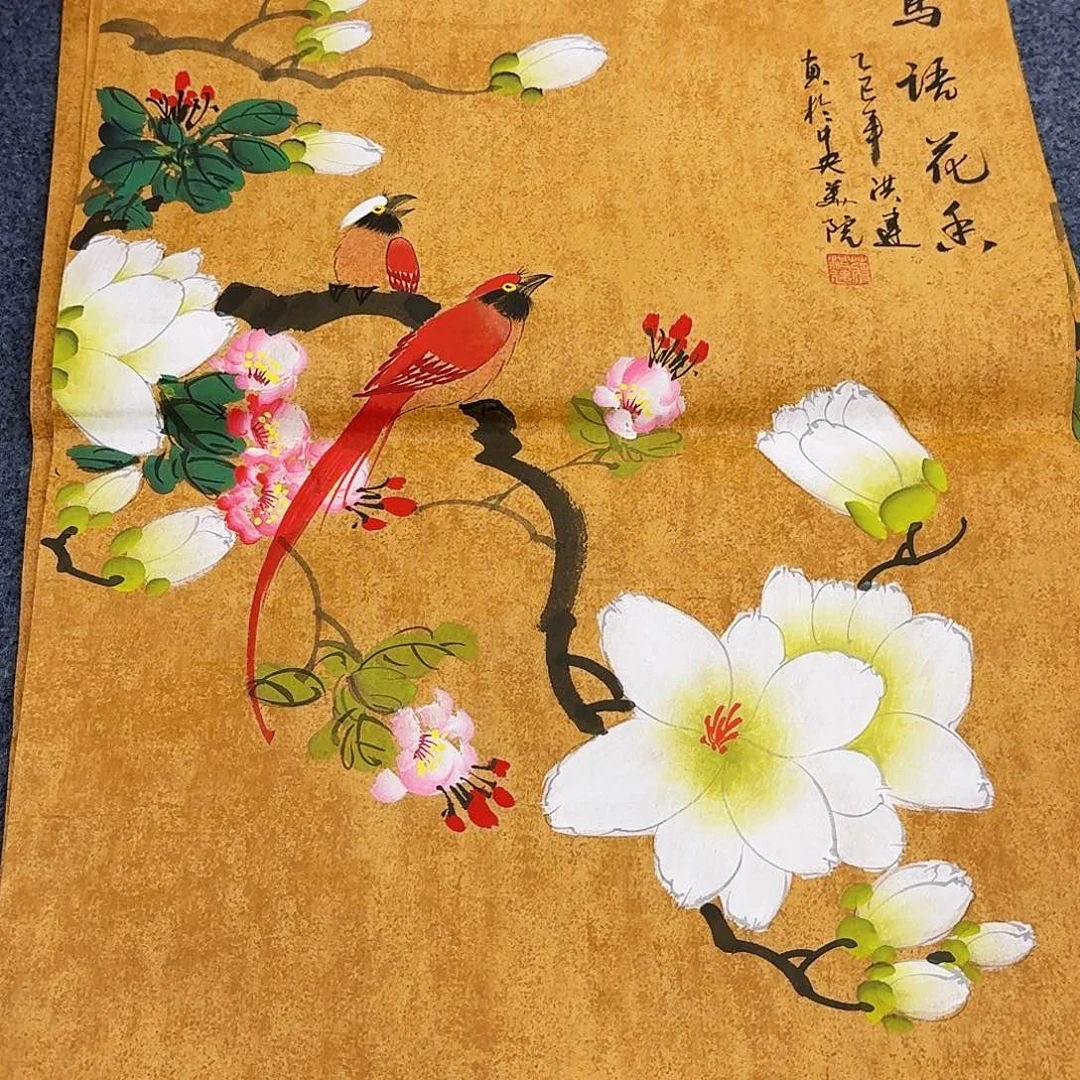 鳥语花香
乙巳年洪建
寫於中央美院